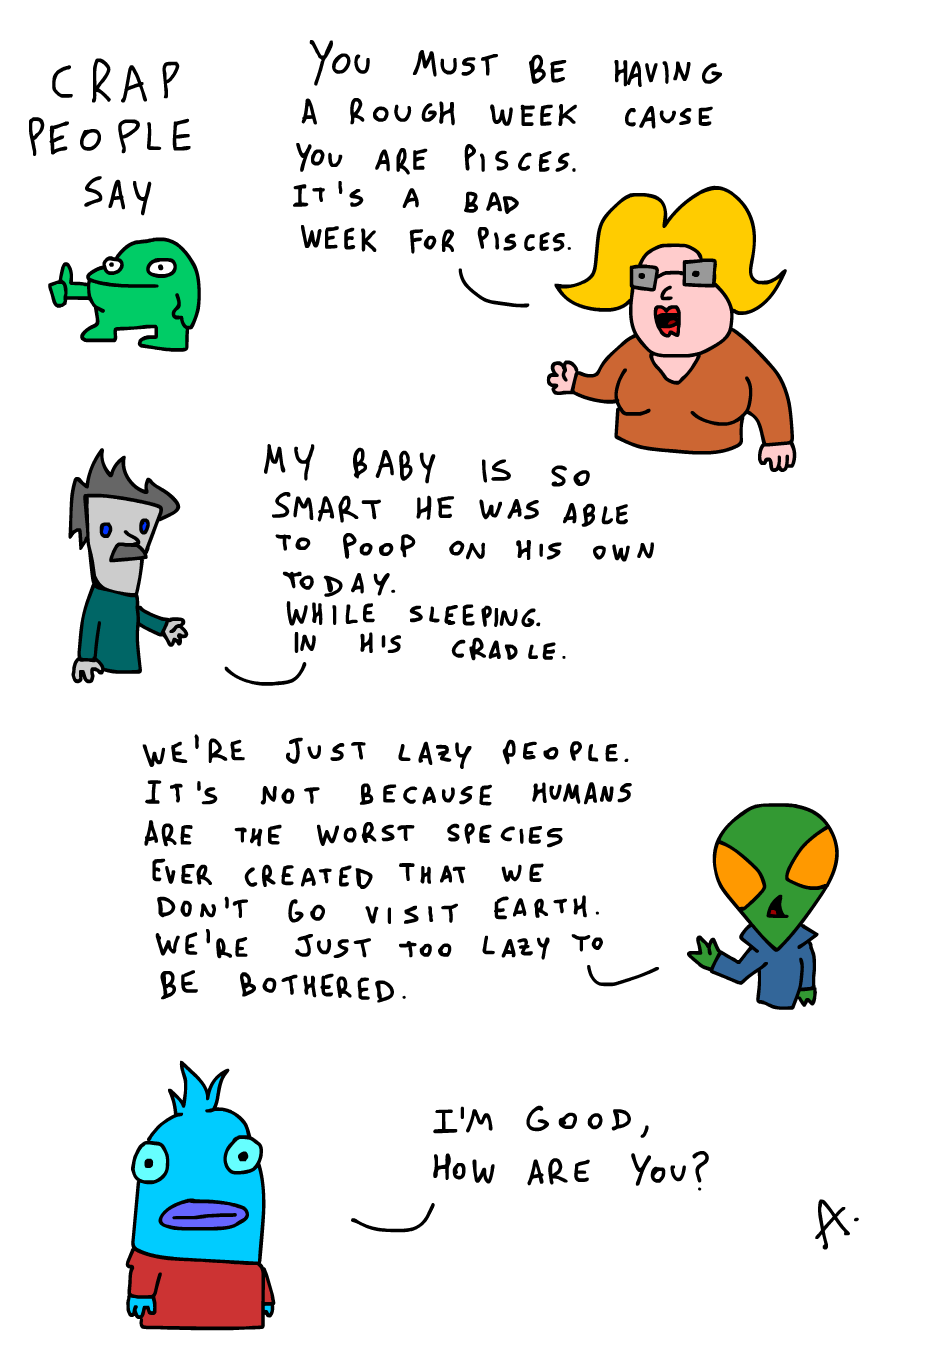 CRAP
PEOPLE
SAY
YOU MUST BE HAVING
A ROUGH WEEK CAUSE
YOU ARE PISCES.
IT'S A BAD
WEEK FOR PISCES.
MY BABY IS SO
SMART HE WAS ABLE
TO POOP ON HIS OWN
TODAY.
WHILE SLEEPING.
IN HIS CRADLE.
WE'RE JUST LAZY PEOPLE.
IT'S NOT BECAUSE HUMANS
ARE THE WORST SPECIES
EVER CREATED THAT WE
DON'T GO VISIT EARTH.
WE'RE JUST TOO LAZY TO
BE BOTHERED.
I'M GOOD,
HOW ARE YOU?
A.